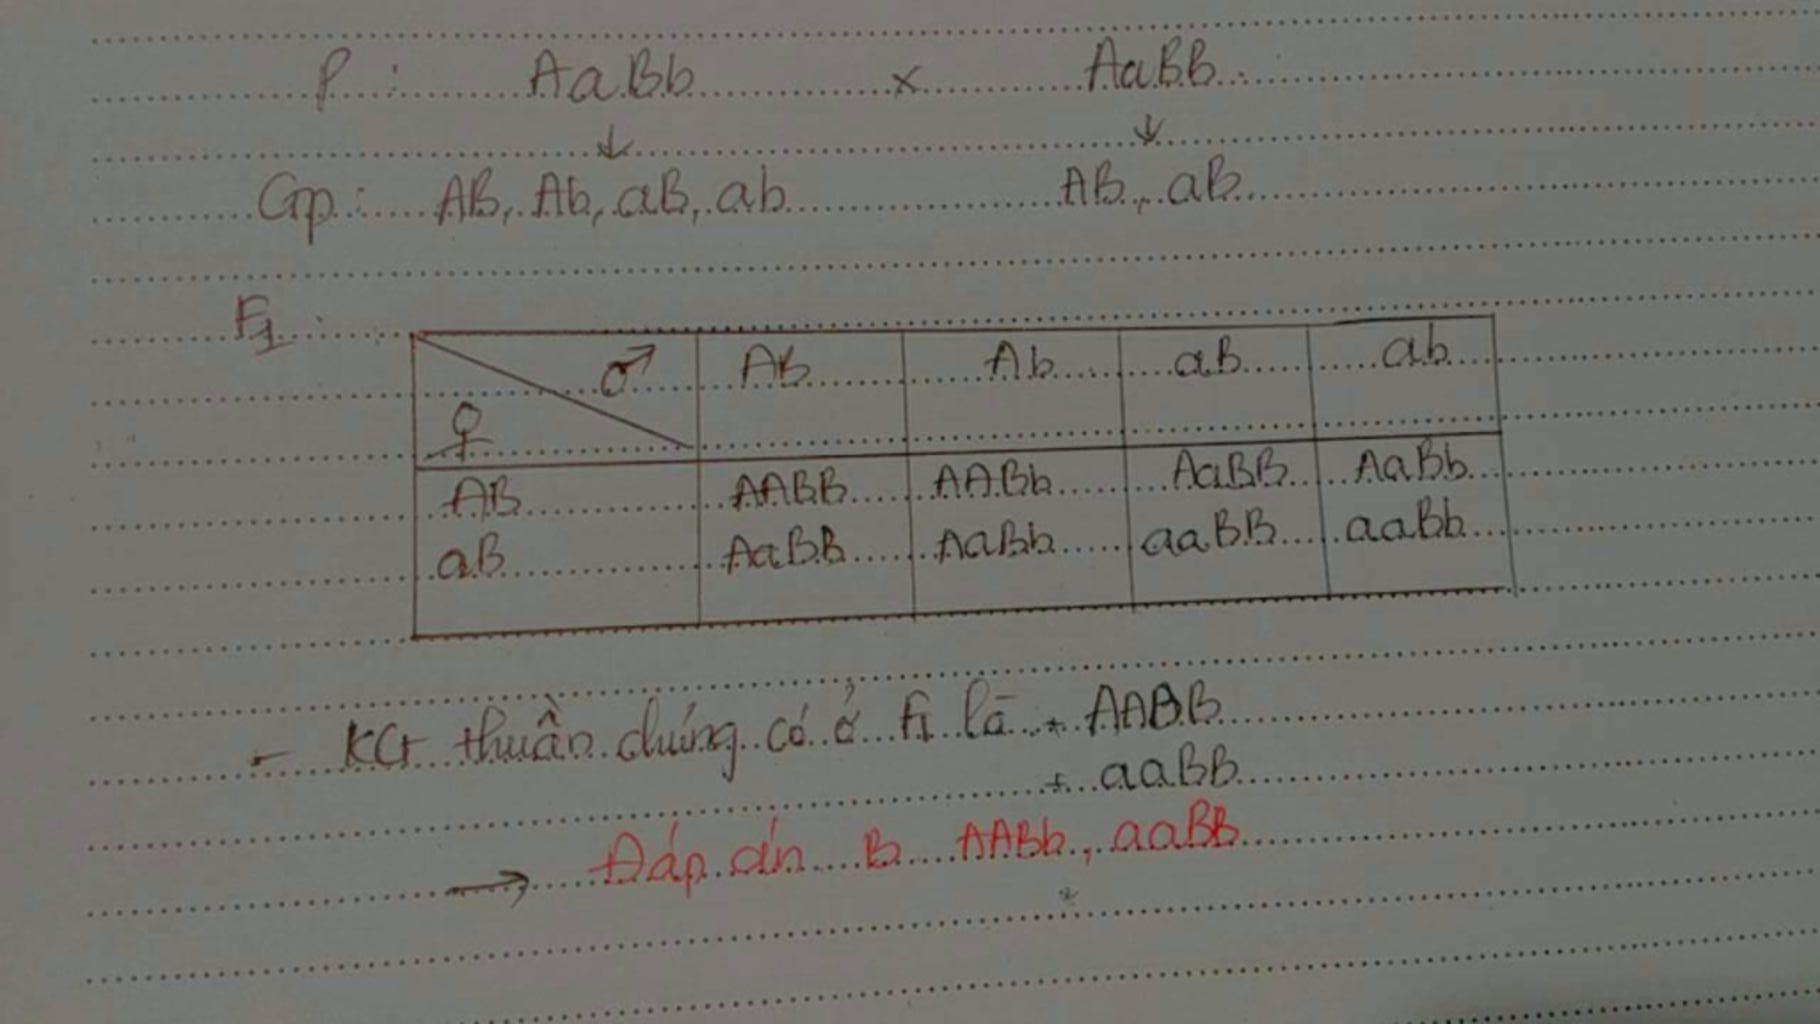 P : AaBb x AaBB
↓ ↓
Gp : AB, Ab, aB, ab AB, aB
F1 :
♂ AB Ab aB ab
♀
AB AABB AABb AaBB AaBb
aB AaBB AaBb aaBB aaBb
- KG thuần chủng có ở F1 là + AABB
+ aaBB
→ Đáp án B AABb, aaBB